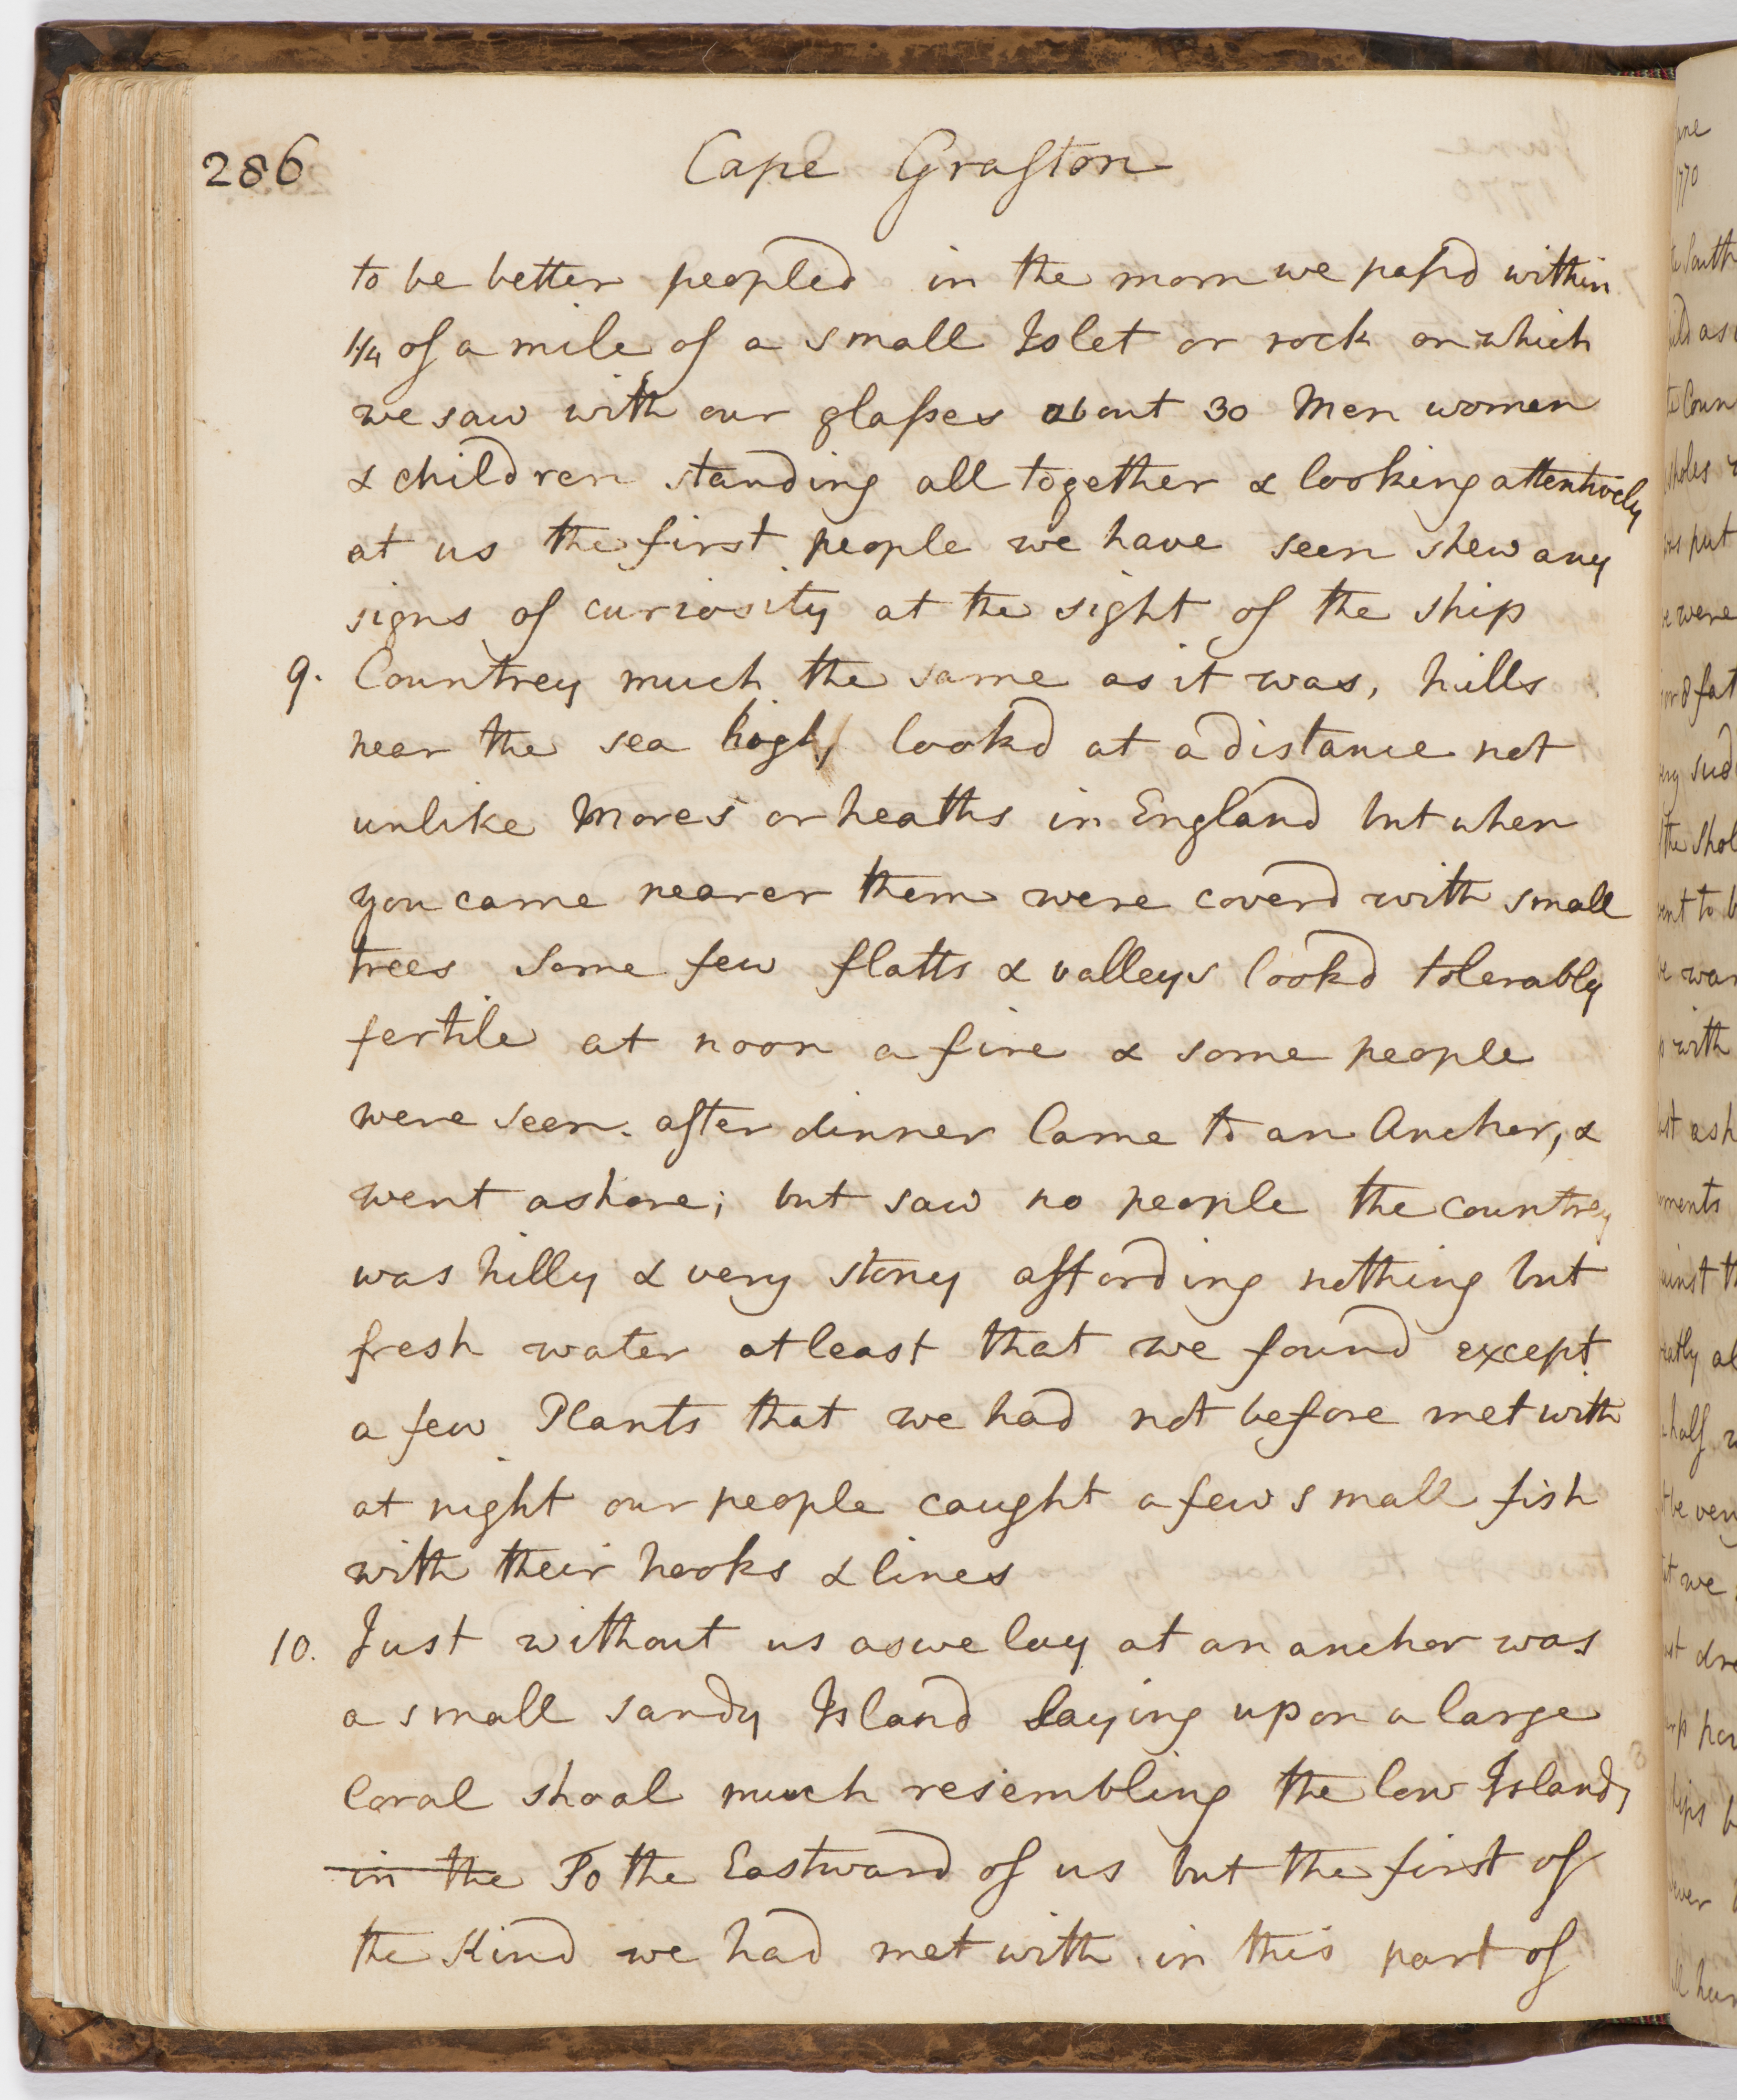 286
Cape Grafton
to be better peopled in the morn we passd within
1/4 of a mile of a small Islet or rock on which
we saw with our glasses about 30 Men women
& children standing all together & looking attentively
at us the first people we have seen shew any
signs of curiosity at the sight of the ship
9. Countrey much the same as it was, hills
near the sea high, lookd at a distance not
unlike Mores or heaths in England but when
you came nearer them were coverd with small
trees some few flatts & valleys lookd tolerably
fertile at noon a fire & some people
were seen. after dinner Came to an Ancher, &
went ashore; but saw no people the countrey
was hilly & very stony affording nothing but
fresh water at least that we found except
a few Plants that we had not before met with
at night our people caught a few small fish
with their hooks & lines
10. Just without us as we lay at an ancher was
a small sandy Island laying upon a large
Coral shoal much resembling the low Islands
in the To the Eastward of us but the first of
the Kind we had met with in this part of